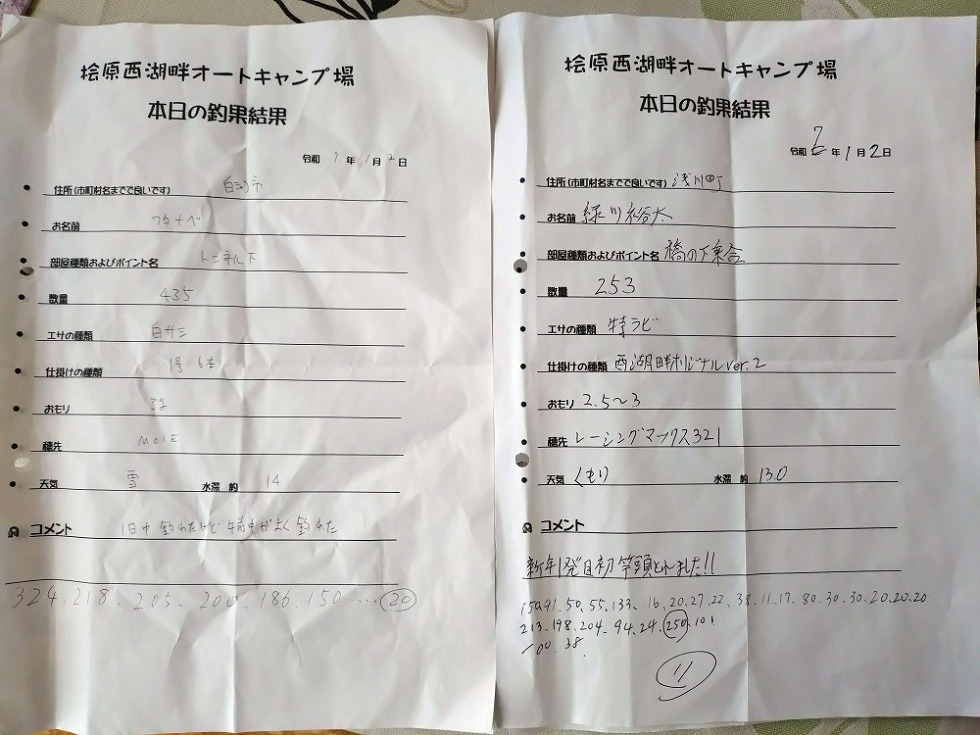 桧原西湖畔オートキャンプ場
本日の釣果結果
令和 7 年 1 月 2 日
住所(市町村名までで良いです) 白河市
お名前 ワタナベ
部屋種類およびポイント名 トンネル下
数量 435
エサの種類 白サシ
仕掛けの種類 1号 6本
おもり 3g
穂先 MOLE
天気 雪 水深 約 14
コメント 1日中釣れたけど午前中がよく釣れた
324.218、205、200、186、150 .... 20
桧原西湖畔オートキャンプ場
本日の釣果結果
令和 7 年 1 月 2 日
住所(市町村名までで良いです) 浅川町
お名前 緑川裕太
部屋種類およびポイント名 橋の下乗合
数量 253
エサの種類 特ラビ
仕掛けの種類 西湖畔オリジナルver.2
おもり 2.5~3
穂先 レーシングマックス321
天気 くもり 水深 約 13.0
コメント
新年1発目初竿頭とれました!!
150.91.50.55.133.16.20.27.22.38.11.17.80.30.30.20.20.20
213.198.204.94.24.250.101
100.38.
11